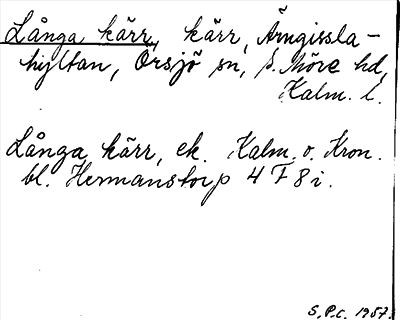 Långa kärr, kärr, Ärngissla-
hyltan, Örsjö sn, s. Möre hd,
Kalm. l.
Långa kärr, ek. Kalm. o. Kron.
bl. Hermanstorp 4 F 8 i.
S.P.C. 1957.